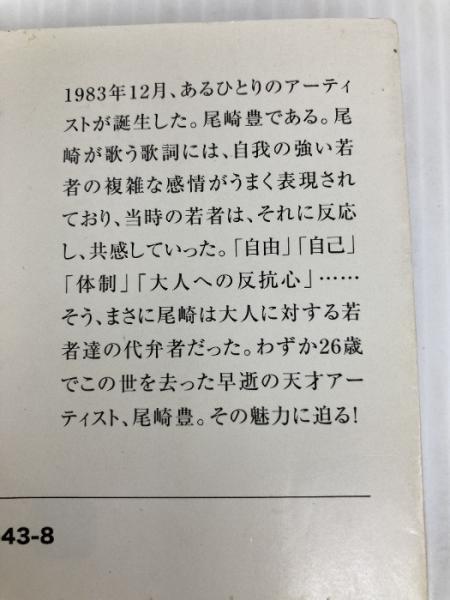 1983年12月、あるひとりのアーティ
ストが誕生した。尾崎豊である。尾
崎が歌う歌詞には、自我の強い若
者の複雑な感情がうまく表現され
ており、当時の若者は、それに反応
し、共感していった。「自由」「自己」
「体制」「大人への反抗心」……
そう、まさに尾崎は大人に対する若
者達の代弁者だった。わずか26歳
でこの世を去った早逝の天才アー
ティスト、尾崎豊。その魅力に迫る!
43-8